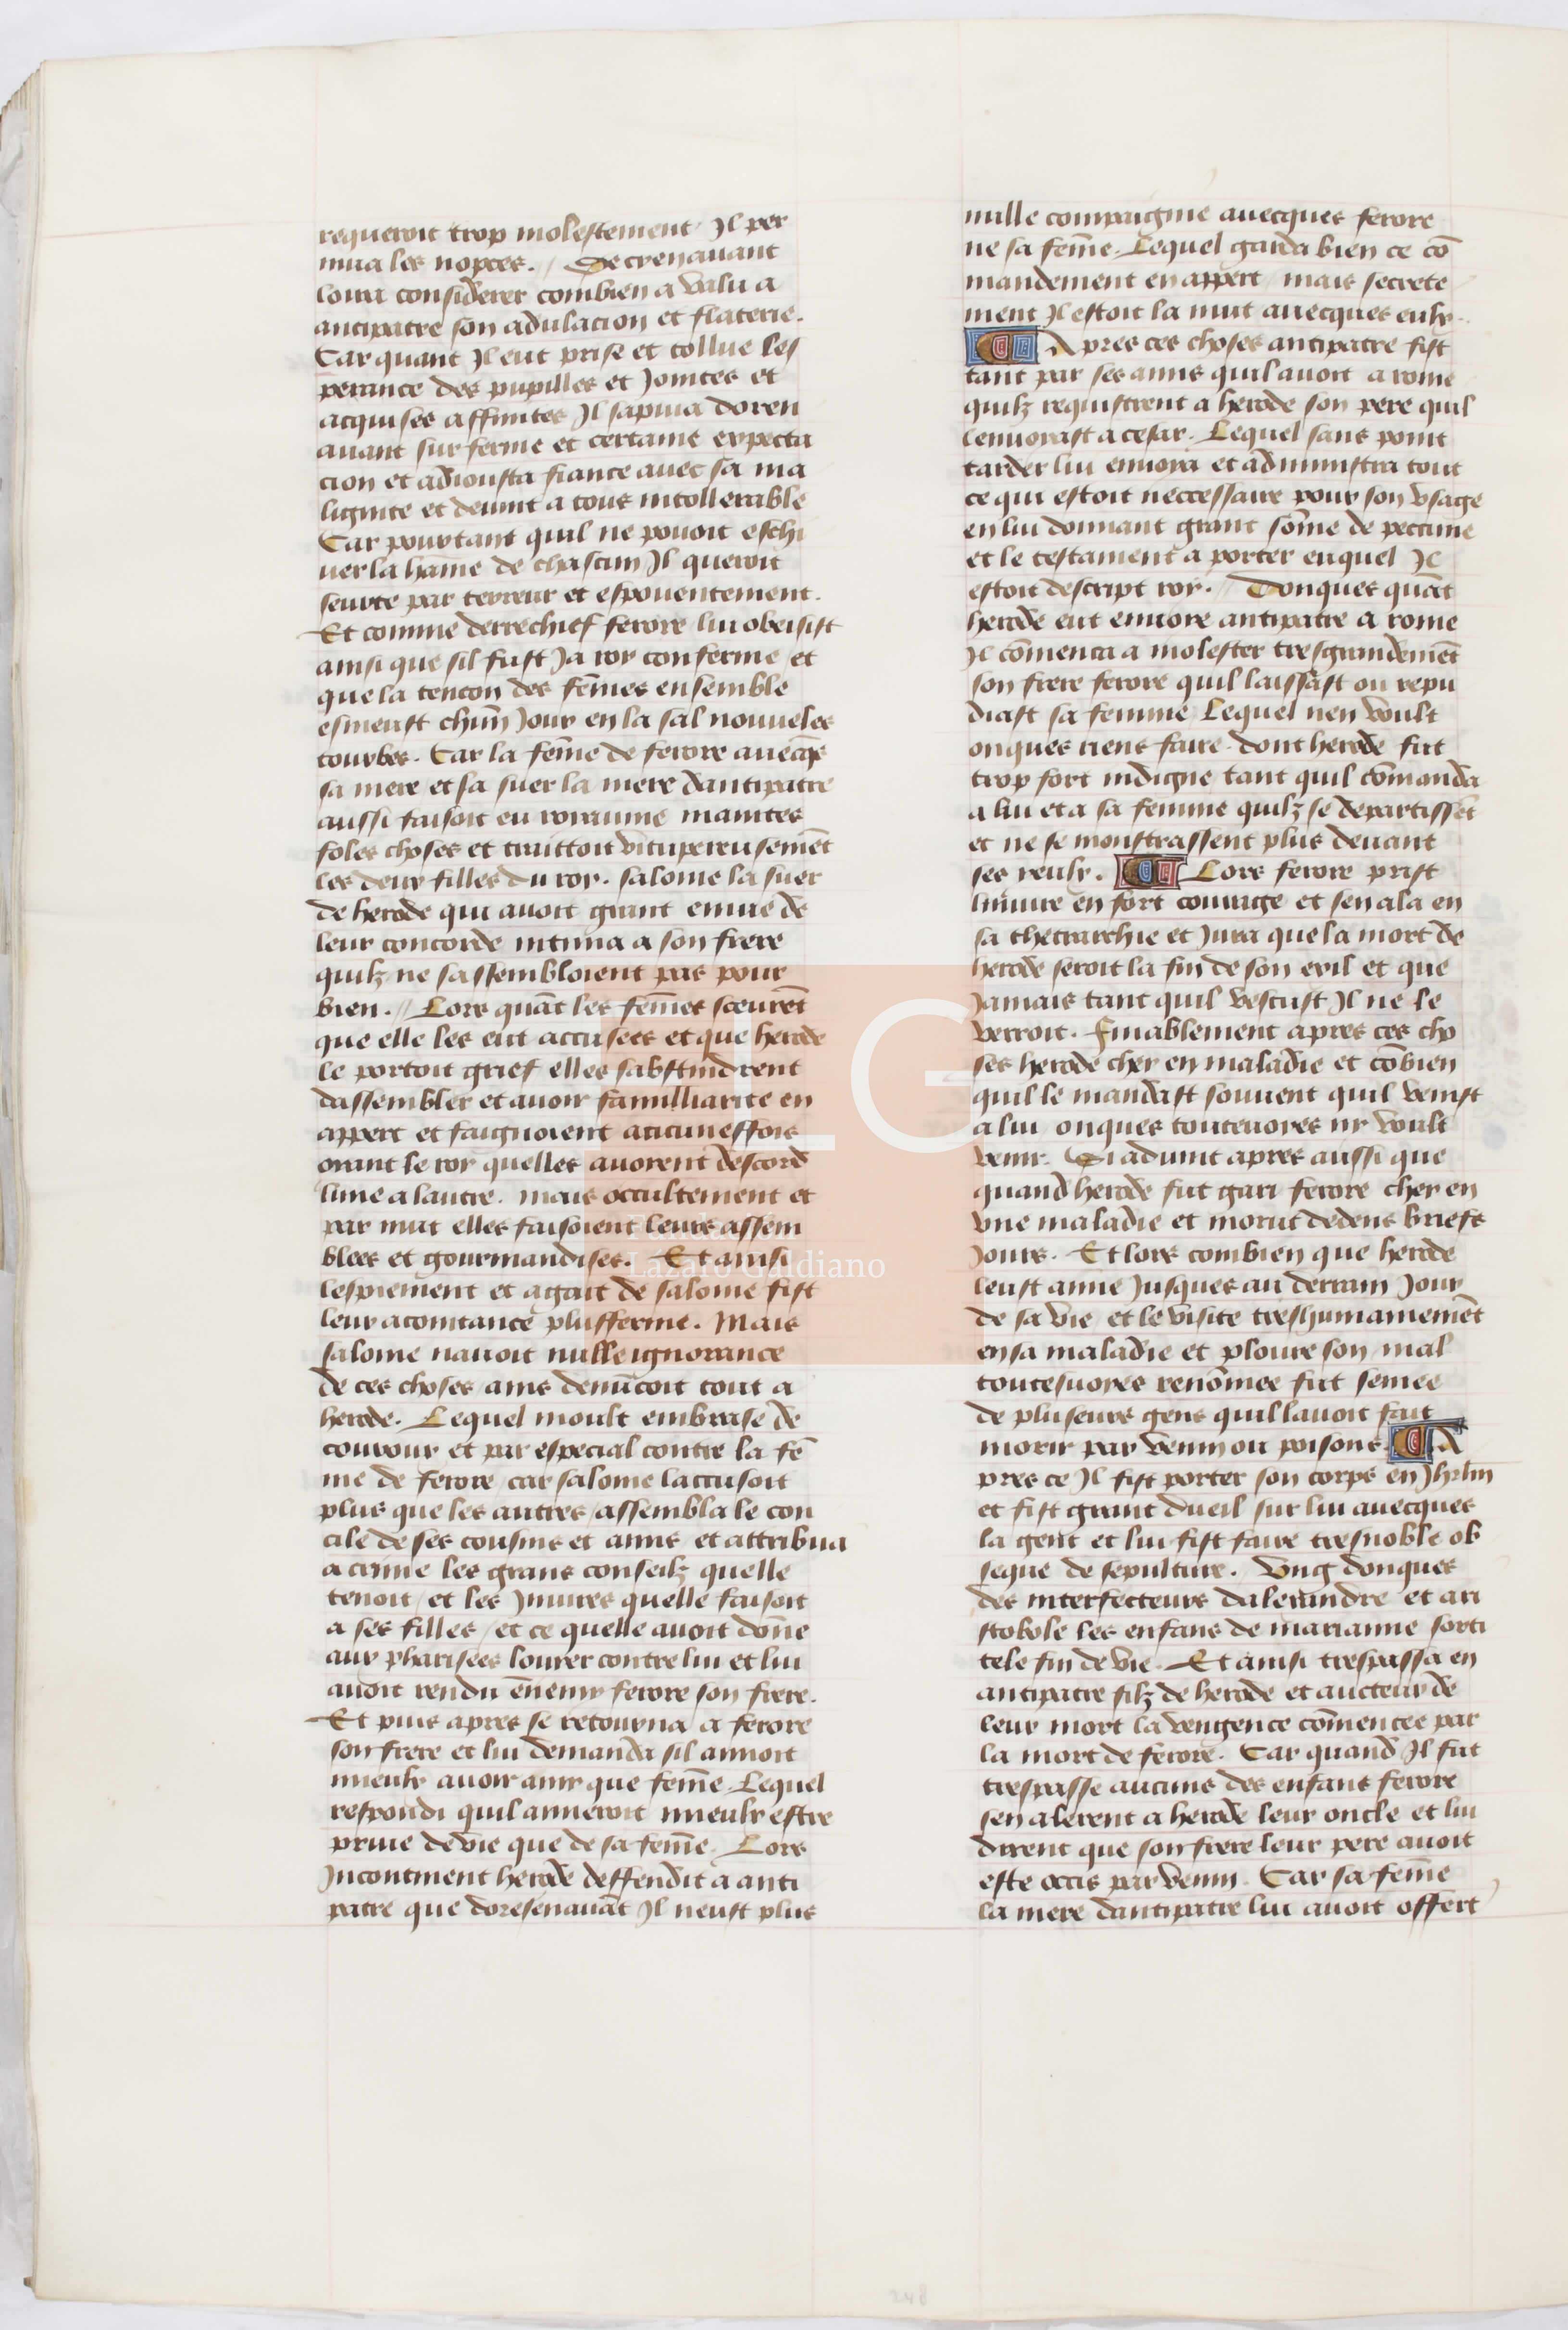 requeroit trop molestement Il per
mua les nopces. // De cy en auant
loira considerer combien a valu a
antipatre son adulacion et flaterie.
Car quant Il eut prise et tollue les
perance des pupilles et Jointes et
acquises affinites Il sapuia doren
auant sur ferme et certaine expecta
cion et adiousta fiance auec sa ma
lignite et deuint a tous intollerable
Car pourtant quil ne pouoit eschi
uer la hãine de chascun Il queroit
seurte par terreur et espouentement.
Et comme derrechief ferore lui obeisist
ainsi que sil fust Ja roy conferme et
que la tencon des fẽmes ensemble
esmeust chũn Jour en la sal nouueles
tourbes. Car la fẽme de ferore auecqs
sa mere et sa suer la mere dantipatre
aussi faisoit eu royaume maintes
foles choses et traittoit vitupereusemẽt
les deux filles du roy. salome la suer
de herode qui auoit grant enuie de
leur concorde intima a son frere
quilz ne sassembloient pas pour
bien. // Lors quãt les fẽmes sceurẽt
que elle les eut accusees et que herode
le portoit grief elles sabstindrent
dassembler et auoir familliarite en
appert et faignoient aucuneffois
oiant le roy quelles auoient descord
lune a lautre. mais occultement et
par nuit elles faisoient leurs assem
blees et gourmandises. Et ainsi
lespiement et agait de salome fist
leur acointance plusferme. Mais
salome nauoit nulle ignorance
de ces choses ains denũcoit tout a
herode. Lequel moult embrase de
courour et par especial contre la fẽ
me de ferore car salome laccusoit
plus que les autres assembla le con
cile de ses cousins et amis et attribua
a crime les grans conseilz quelle
tenoit et les Iniures quelle faisoit
a ses filles et ce quelle auoit dõne
aux pharisees louyer contre lui et lui
auoit rendu ẽnemy ferore son frere.
Et puis apres se retourna a ferore
son frere et lui demanda sil aimoit
mieulx auoir amy que fẽme. Lequel
respondi quil aimeroit mieulx estre
priue de vie que de sa fẽme. Lors
Incontinent herode deffendit a anti
patre que doresenauãt Il neust plus
nulle compaignie auecques ferore
ne sa fẽme. Lequel garda bien ce cõ
mandement en appert mais secrete
ment Il estoit la nuit auecques eulx.
Apres ces choses antipatre fist
tant par ses amis quil auoit a rome
quilz requistrent a herode son pere quil
lenuoiast a cesar. Lequel sans point
tarder lui enuoya et administra tout
ce qui estoit neccessaire pour son vsage
en lui donnant grant sõme de peccune
et le testament a porter euquel Il
estoit descript roy. Donques quãt
herode eut enuoie antipatre a rome
Il cõmenca a molester tresgrandemẽt
son frere ferore quil laissast ou repu
diast sa femme Lequel nen voult
onques riens faire. dont herode fut
trop fort indigne tant quil cõmanda
a lui et a sa femme quilz se departissẽt
et ne se monstrassent plus deuant
ses yeulx. Lors ferore prist
liniure en fort courage et sen ala en
sa thetrarchie et Jura que la mort de
herode seroit la fin de son exil et que
Jamais tant quil vescust Il ne le
verroit. Finablement apres ces cho
ses herode chey en maladie et cõbien
quil le mandast souuent quil venist
a lui onques touteuoies ny voult
venir. Si aduint apres aussi que
quand herode fut gari ferore chey en
vne maladie et morut dedens briefs
Jours. Et lors combien que herode
leust aime Jusques au derrain Jour
de sa vie et le visite treshumainemẽt
en sa maladie et ploure son mal
toutesuoyes renõmee fut semee
de pluseurs gens quil lauoit fait
morir par venin ou poisons. A
pres ce Il fist porter son corps en Jhrlm
et fist grant dueil sur lui auecques
la gent et lui fist faire tresnoble ob
seque de sepulture. Vng donques
des interfecteurs dalexandre et ari
stobole les enfans de marianne sorti
tele fin de vie. Et ainsi trespassa en
antipatre filz de herode et aucteur de
leur mort la vengence cõmencee par
la mort de ferore. Car quand Il fut
trespasse aucuns des enfans ferore
sen alerent a herode leur oncle et lui
dirent que son frere leur pere auoit
este occis par venin. Car sa fẽme
la mere dantipatre lui auoit offert
LG
Fundación
Lázaro Galdiano
248